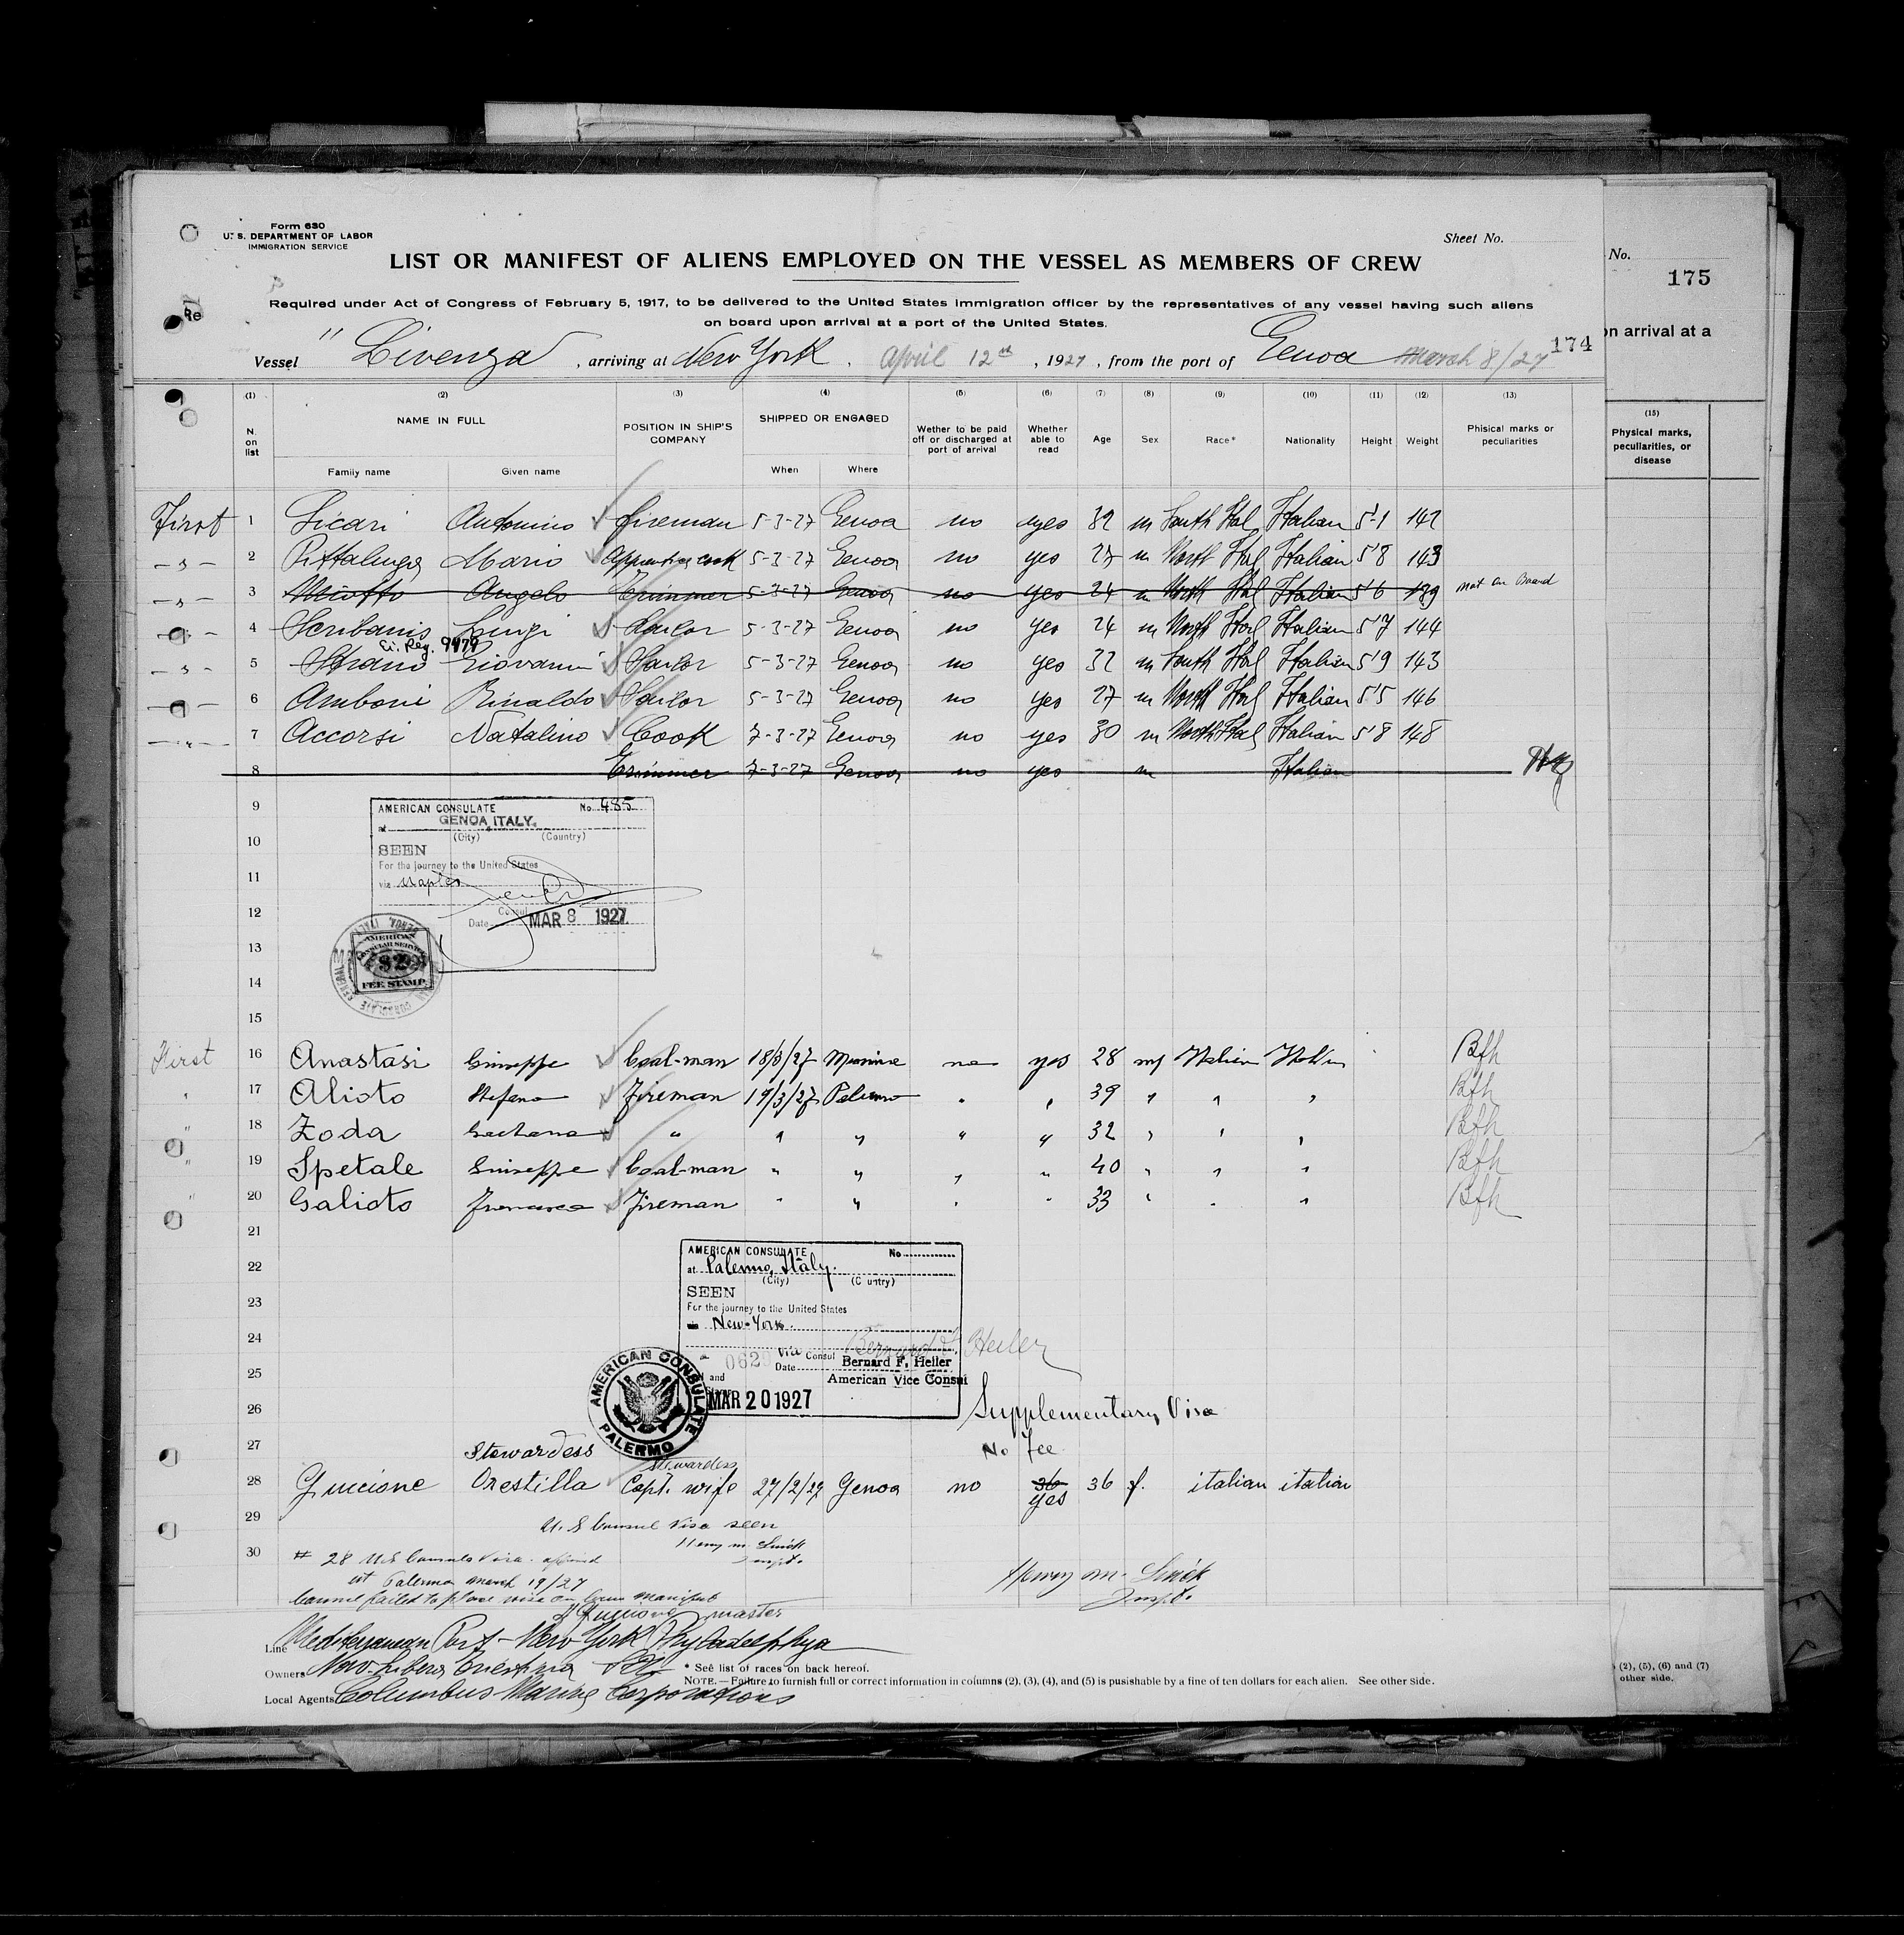 Form 630
U. S. DEPARTMENT OF LABOR
IMMIGRATION SERVICE
Sheet No.
LIST OR MANIFEST OF ALIENS EMPLOYED ON THE VESSEL AS MEMBERS OF CREW
No.
175
Required under Act of Congress of February 5, 1917, to be delivered to the United States immigration officer by the representatives of any vessel having such aliens
on board upon arrival at a port of the United States.
on arrival at a
Vessel "Livenza", arriving at New York. April 12th, 1927, from the port of Genoa March 8/27 174
(1) (2) (3) (4) (5) (6) (7) (8) (9) (10) (11) (12) (13) (15)
N. on list NAME IN FULL Family name Given name POSITION IN SHIP'S COMPANY SHIPPED OR ENGAGED When Where Wether to be paid off or discharged at port of arrival Whether able to read Age Sex Race* Nationality Height Weight Phisical marks or peculiarities Physical marks, peculiarities, or disease
First 1 Licari Antonino Fireman 5-3-27 Genoa no yes 32 m South Ital Italian 5'1 142
-s- 2 Pittaluga Mario Apprentice cook 5-3-27 Genoa no yes 27 m North Ital Italian 5'8 143
-s- 3 Miotto Angelo Trimmer 5-3-27 Genoa no yes 24 m North Ital Italian 5'6 139 not on Board
4 Scribanis Luigi Sailor 5-3-27 Genoa no yes 24 m North Ital Italian 5'7 144
Ci. Reg. 9479
-s- 5 Strano Giovanni Sailor 5-3-27 Genoa no yes 32 m South Ital Italian 5'9 143
6 Amboni Rinaldo Sailor 5-3-27 Genoa no yes 27 m North Ital Italian 5'5 146
7 Accorsi Natalino Cook 7-3-27 Genoa no yes 30 m North Ital Italian 5'8 148
8 Trimmer 7-3-27 Genoa no yes m Italian
9
AMERICAN CONSULATE No. 485
at GENOA, ITALY.
(City) (Country)
10
SEEN
For the journey to the United States
11
via Naples
12
Consul
Date MAR 8 1927
13
AMERICAN
CONSULAR SERVICE
$2
FEE STAMP
14
15
First 16 Anastasi Giuseppe Coal-man 18/3/27 Messina no yes 28 m Italian Italian Bfh
17 Alioto Stefano Fireman 19/3/27 Palermo " " 39 " " " Bfh
" 18 Zoda Gaetano " " " " " 32 " " " Bfh
" 19 Spetale Giuseppe Coal-man " " " " 40 " " " Bfh
" 20 Galioto Francesco Fireman " " " " 33 " " " Bfh
21
AMERICAN CONSULATE No.
22
at Palermo, Italy.
(City) (Country)
SEEN
23
For the journey to the United States
New-York.
24
Bernard F. Heiler
062 via Consul Bernard F. Heiler
Date
25
and American Vice Consul
MAR 20 1927
AMERICAN CONSULATE
PALERMO
26
Supplementary Visa
27
No Fee
Stewardess
Stewardess
28 Guccione Orestilla Capt. wife 27/2/27 Genoa no 36 yes 36 f. italian italian
29
U. S Consul Visa seen
Henry M. Smith
Inspt.
30
# 28 U S Consuls Visa affixed
at Palermo March 19/27
Consul failed to place visa on crew manifest
Guccione master
Henry M. Smith
Inspt.
Line Mediterranean Port - New York Phyladelphya
Owners Nav. Libera Triestina
* See list of races on back hereof.
NOTE. — Failure to furnish full or correct information in columns (2), (3), (4), and (5) is pusishable by a fine of ten dollars for each alien. See other side.
Local Agents Columbus Marine Corporations
(2), (5), (6) and (7)
other side.